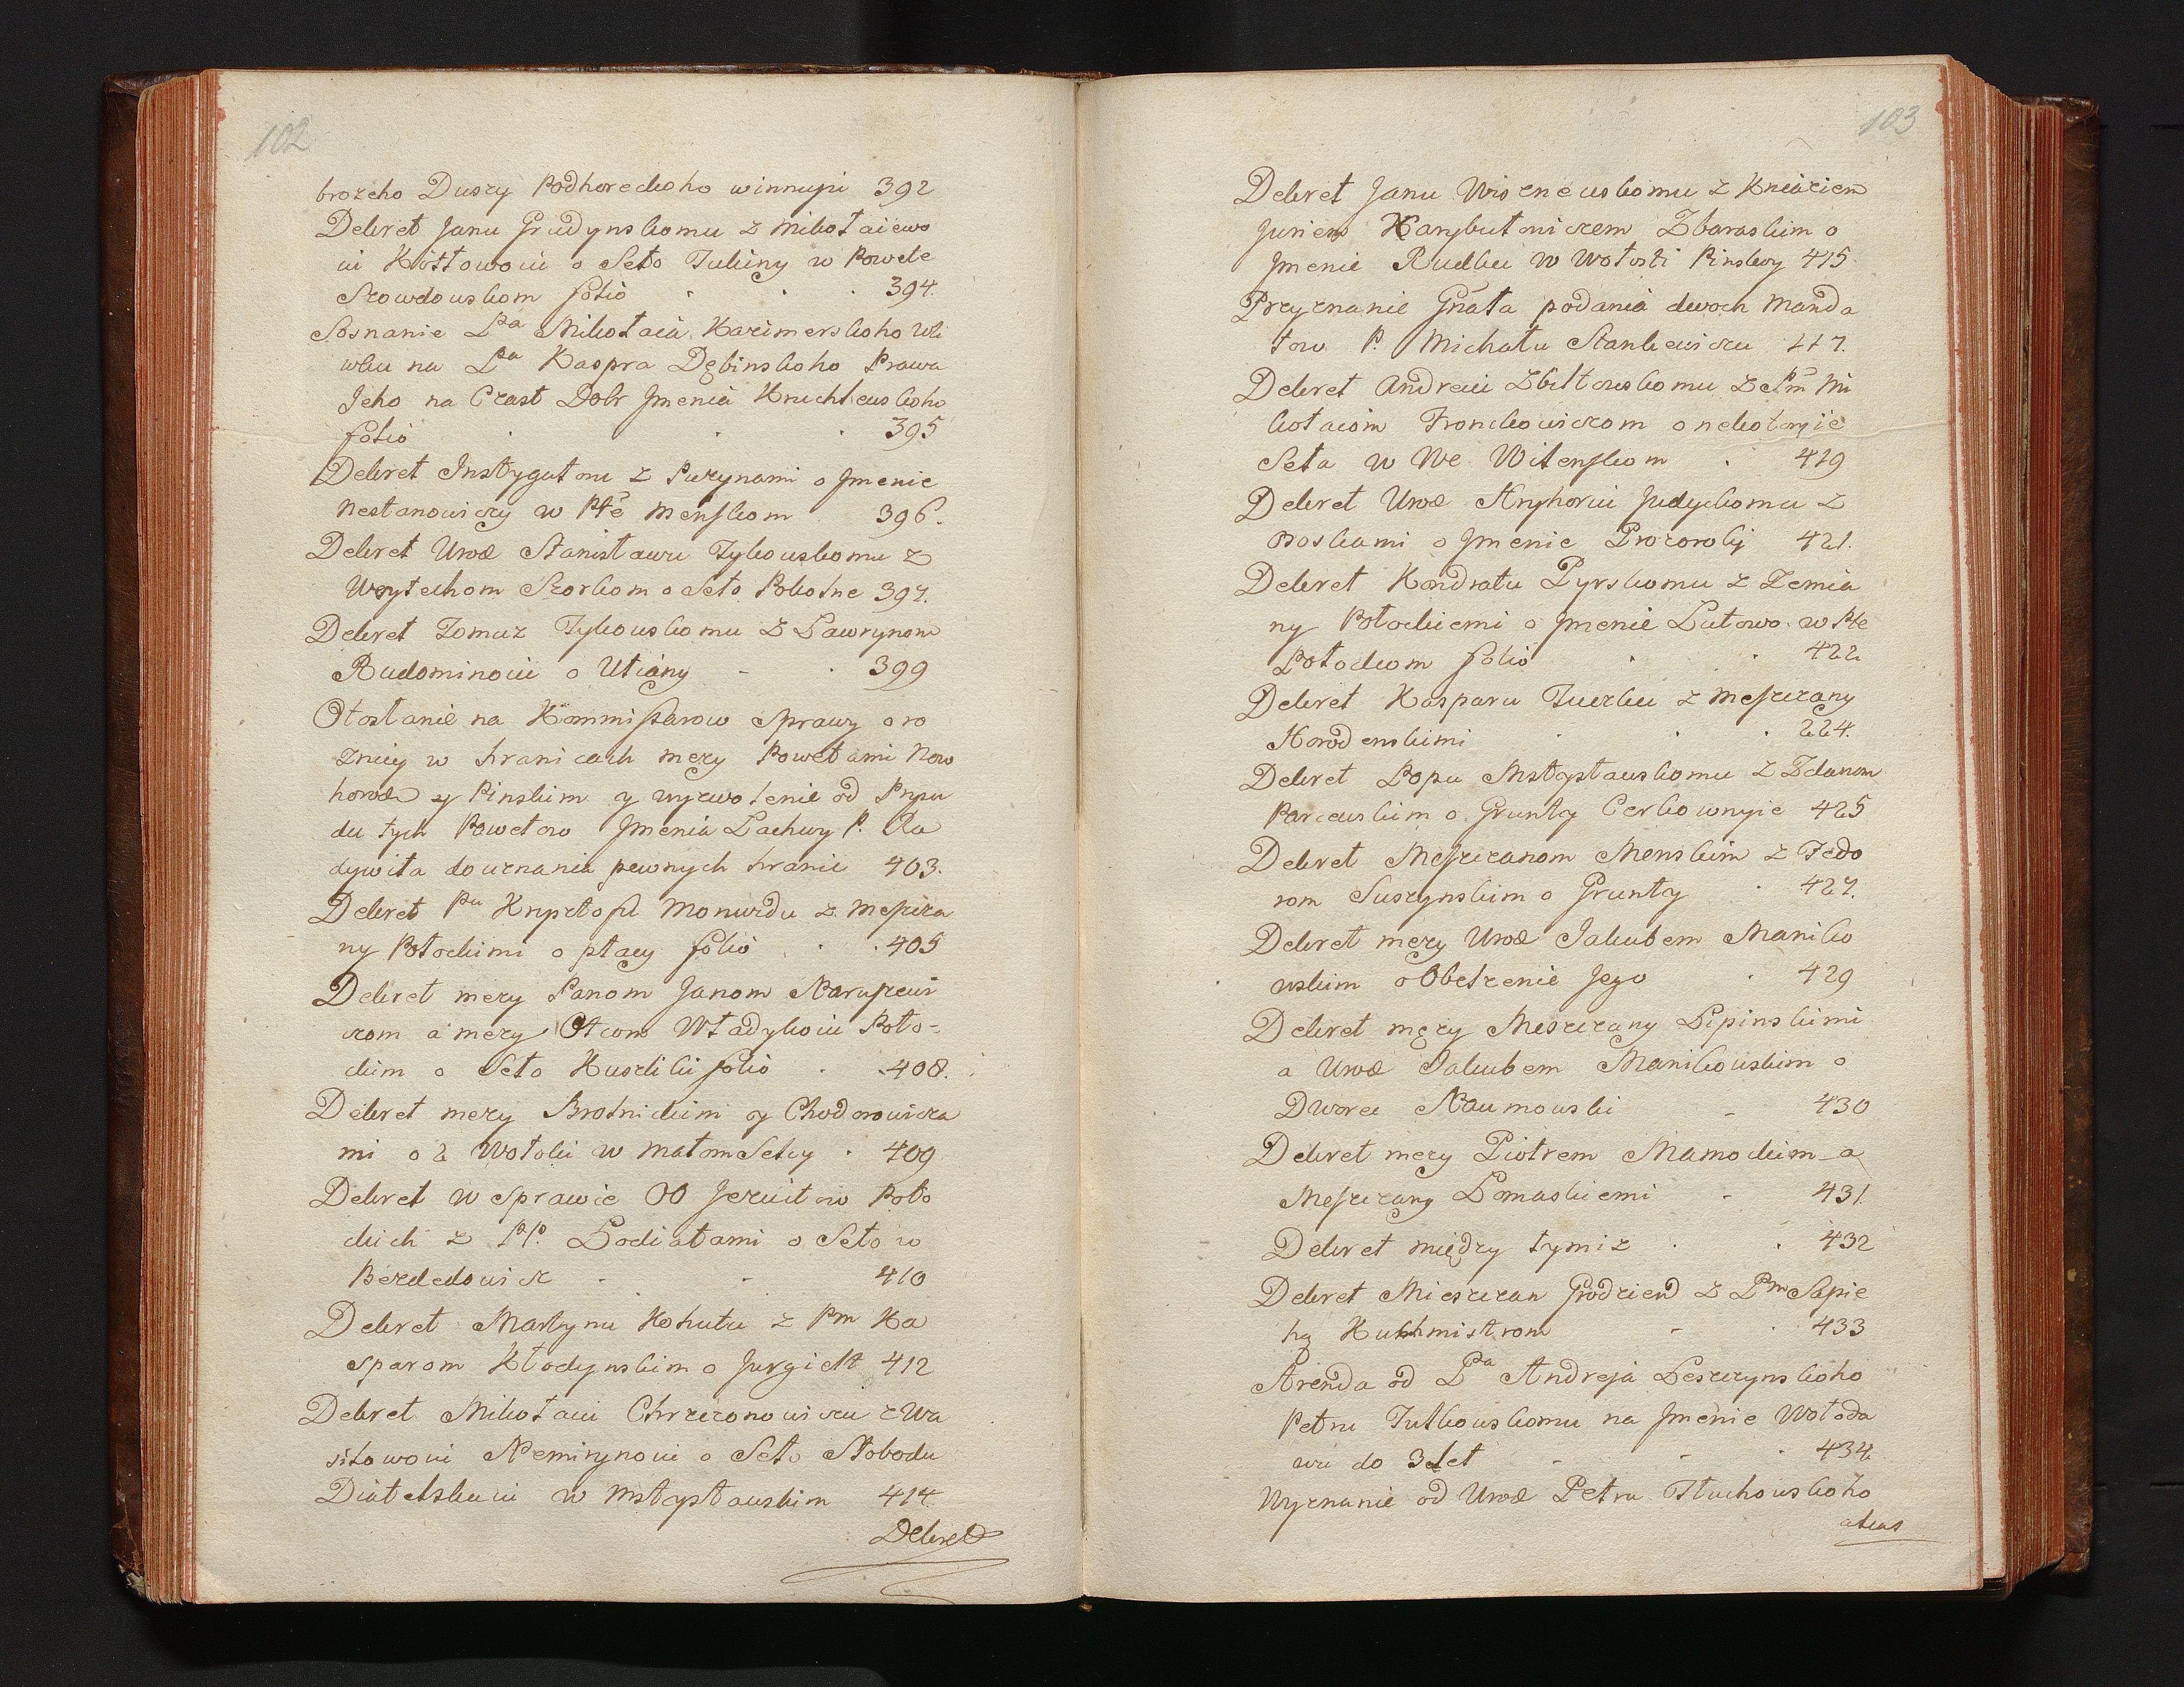 102
brożcho Duszy Podhoreckoho winnupi 392
Dekret Janu Grudynskomu z Mikołaiewo
ui Kostowoiu o Seło Tuliny w Powete
Rzowdouskom folio . . . 394.
Soznanie Pa Mikołaia Kazimerskoho Wli
wku na Pa Kaspra Dębinskoho Prawa
Jeho na Czast Dobr Jmenia Knichteuskoho
folio . . . 395
Dekret Instygatoru z Puzynami o Jmenie
Nestanowiczy w Płe Menskom 396.
Dekret Urod Stanisławu Tykouskomu z
Woytechom Szorkom o Seło Pokotne 397.
Dekret Tomuz Tykouskomu z Ławrynom
Rudominoiu o Utiany - . 399
Otosłanie na Kommissarow Sprawy o ro
znicy w hranicach mezy Powetami Now
horod y Pinskim y wyzwolenie od Prypu
du tych Powetow Jmenia Lachwy P. Ra
dywiła do uznania pewnych hranic 403.
Dekret Pu Krysztofu Monwidu z Meszcza
ny Połockimi o płacy folio . . 405
Dekret mezy Panom Janom Naruszewi
czom a mezy Otcom Władykoiu Poło-
ckim o Seło Kuszliki folio . . 408.
Dekret mezy Brotnickim y Chodorowicza
mi o 2 Wołoki w Małom Selcy . 409
Dekret w Sprawie OO Jezuitow Poło
ckich z PP. Podiatami o Seło w
Bezdedowicz - - 410
Dekret Martynu Kohutu z Pm Ka
sparom Kłodynskim o Jurgielt 412
Dekret Mikołaiu Chrzczonowiczu z Wa
siłowoiu Nemirynoiu o Seło Słobodu
Diatelskuiu w Mstysłauskim 414
Dekret
103
Dekret Janu Wiszneuskomu z Kniaziem
Juriem Harybutowiczem Zbaraskim o
Jmenie Rudku w Wołosti Pinskoy 415
Przyznanie Gnata podania dwoch Manda
tow P. Michału Stankewiczu 417.
Dekret Andreiu Zbiltouskomu z Pm Mi
kołaiom Fronckowiczom o nekotoryie
Seła w We Witenskom . 419
Dekret Urod Hryhoriu Judyckomu z
Boskami o Jmenie Prozoroky 421.
Dekret Kondratu Pyrskomu z Zemia
ny Połockiemi o Jmenie Lutowo w Płe
Połockom folio . . 422
Dekret Kasparu Juczku z Meszczany
Horodenskimi . . . 424.
Dekret Popu Mstysłauskomu z Zdanom
Parceuskim o Grunty Cerkownyie 425
Dekret Meszczanom Menskim z Fedo
rom Suszynskim o Grunty . 427.
Dekret mezy Urod Jakubem Maniko
uskim o Obelzenie Jego . 429
Dekret mezy Meszczany Lipinskimi
a Urod Jakubem Manikouskim o
Dworec Naumouski - 430
Dekret mezy Piotrem Mamockim a
Meszczany Łomaskiemi - 431.
Dekret między tymiz . . 432
Dekret Mieszczan Grodzien z Pm Sapie
hą Kuchmistrom - . 433
Arenda od Pa Andreja Leszczynskoho
Petru Tutkouskomu na Jmenie Wołoda
wu do 3 Let - - . 434
Wyznanie od Urod Petra Tłuchouskoho